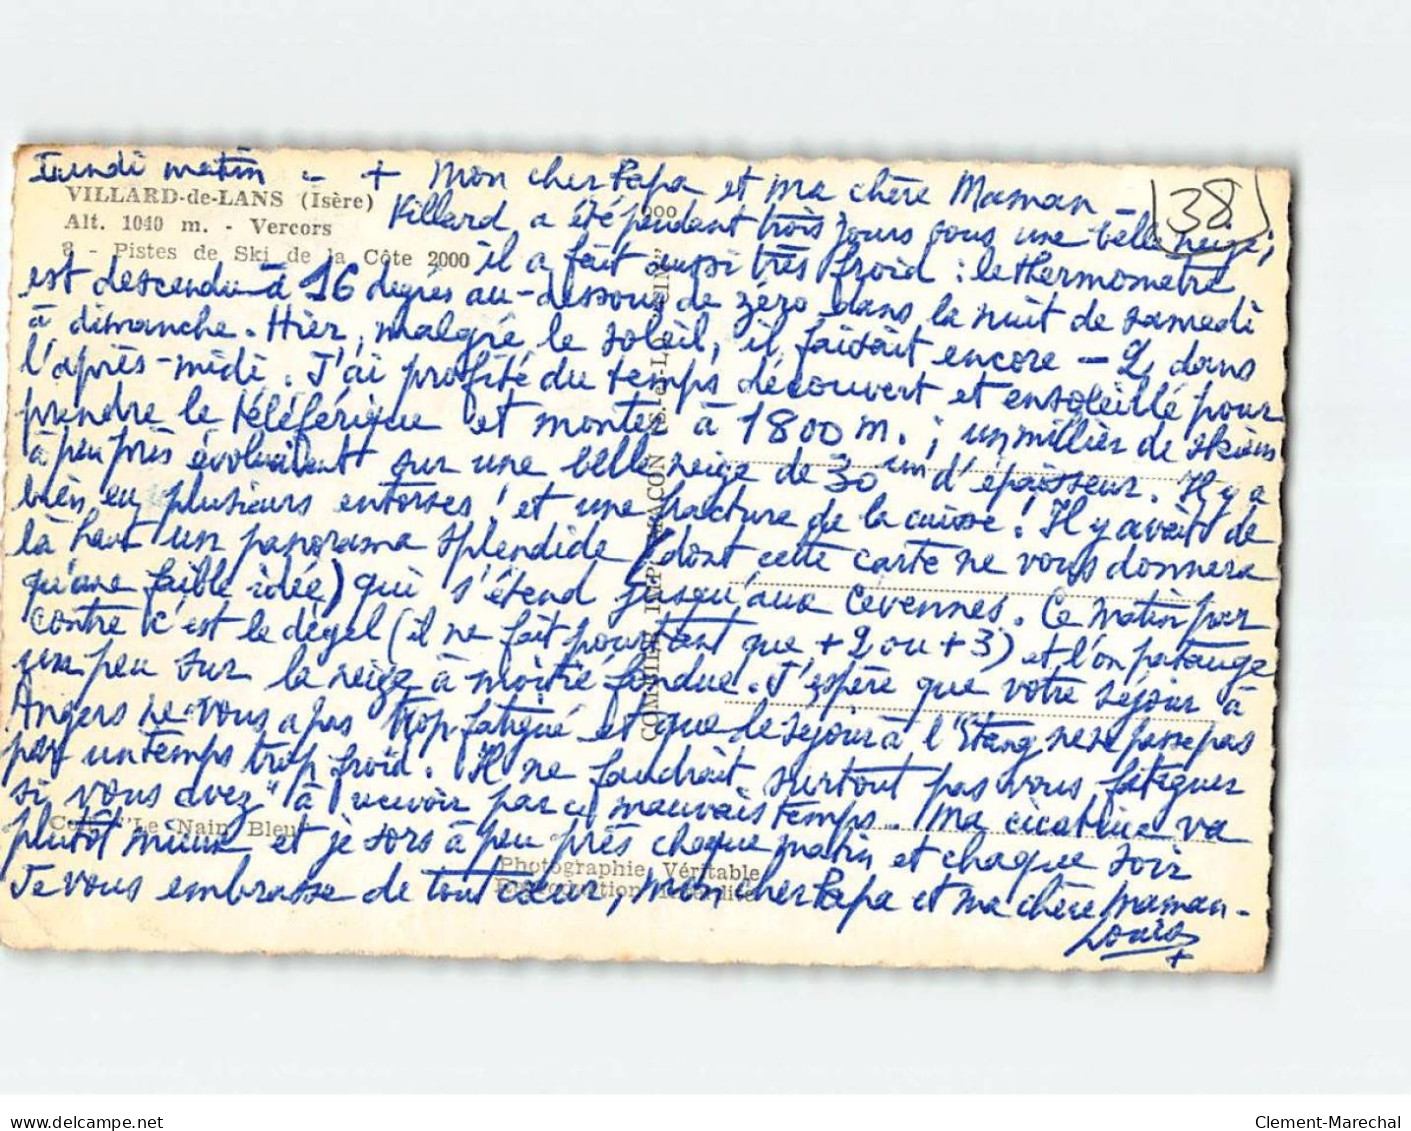 Lundi matin - + Mon cher Papa et ma chère Maman -
(38)
VILLARD-de-LANS (Isère)
Alt. 1040 m. - Vercors
8 - Pistes de Ski de la Côte 2000
Villard a été pendant trois jours sous une belle neige,
il a fait aussi très froid : le thermomètre
est descendu à 16 degrés au-dessous de zéro dans la nuit de samedi
à dimanche. Hier, malgré le soleil, il faisait encore - 2, dans
l'après-midi. J'ai profité du temps découvert et ensoleillé pour
prendre le téléférique et monter à 1800 m. ; un millier de skieurs
à peu près évoluaient sur une belle neige de 30 cm d'épaisseur. Il y a
bien eu plusieurs entorses et une fracture de la cuisse ! Il y avait de
là haut un panorama splendide (dont cette carte ne vous donnera
qu'une faible idée) qui s'étend jusqu'aux Cévennes. Ce matin par
contre c'est le dégel (il ne fait pourtant que +2 ou +3) et l'on patauge
un peu sur la neige à moitié fondue. J'espère que votre séjour à
Angers ne vous a pas trop fatigué et que le séjour à l'Etang ne se passe pas
par un temps trop froid. Il ne faudrait surtout pas vous fatiguer
si vous avez "à recevoir par ce mauvais temps. Ma cicatrice va
plutôt mieux et je sors à peu près chaque matin et chaque soir
Je vous embrasse de tout cœur, mon cher Papa et ma chère Maman -
Louis
+
"Le Nain Bleu"
Photographie Véritable
Reproduction interdite
COMBIER IMP. MACON (S.-et-L.) "CIM"
Clement-Marechal